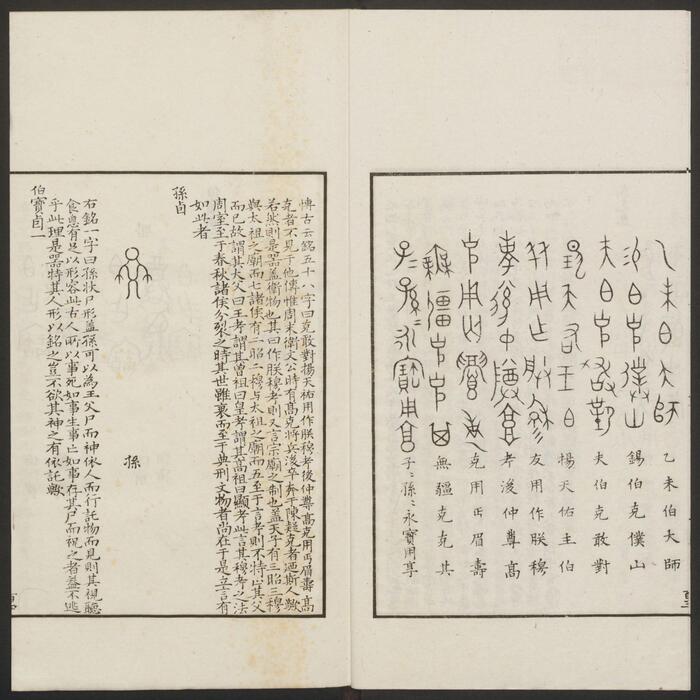 乙未伯大師
錫伯克僕山
夫伯克敢對
揚天佑王伯
友用作朕穆
考後仲尊高
克用丏眉壽
無疆克克其
子〻孫〻永寶用享
愽古云銘五十八字曰克敢對揚天佑用作朕穆考後仲尊高克用丏眉壽高
克者不見于他傳惟周末衛文公時有高克將兵後卒奔于陳疑克者廼斯人歟
若然則是器蓋衛物也其曰作朕穆考則又言宗廟之制也蓋天子有三昭三穆
與太祖之廟而七諸侯有二昭二穆與太祖之廟而五至于言考則不特止其父
而已故謂其大父曰王考謂其曾祖曰皇考謂其高祖曰顯考此言其穆考之法
周室至于春秋諸侯分裂之時其世雖衰而至于典刑文物者尚在于是立言有
如此者
孫卣
孫
右銘一字曰孫狀尸形蓋孫可以為王父尸而神依人而行託物而見則其視聽
食息有足以形容此古人所以事死如事生事亡如事存其尸而祝之者蓋不逃
乎此理是器特其人形以銘之豈不欲其神之有依託歟
伯寶卣一